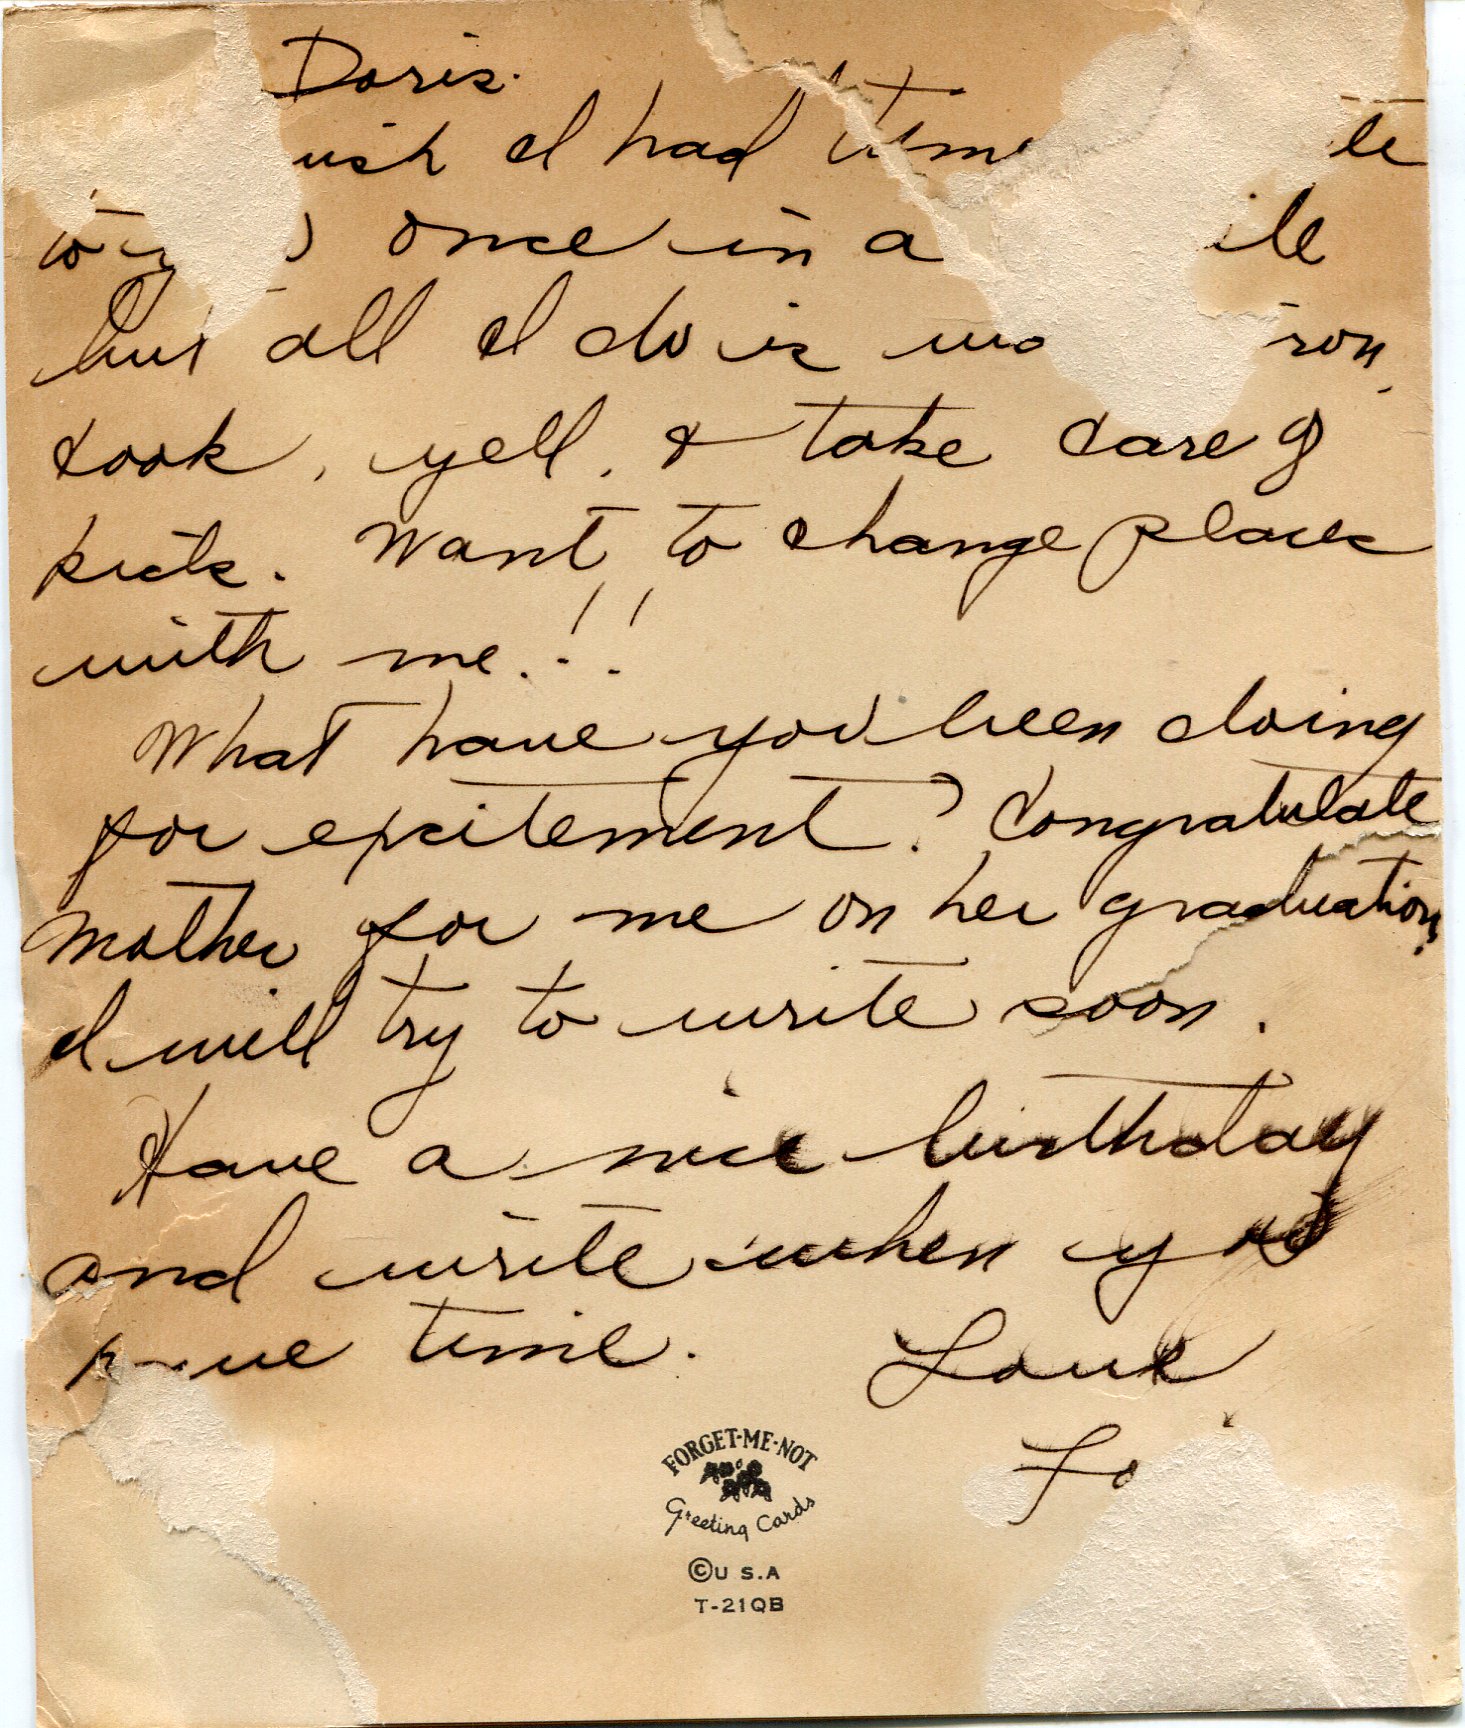 Doris.
wish I had time
once in a
but all I do is
cook, yell, & take care of
kids. Want to change places
with me!!
What have you been doing
for excitement? Congratulate
Mother for me on her graduation.
I will try to write soon.
Have a nice birthday
and write when you
have time. Love
FORGET-ME-NOT
Greeting Cards
©U S.A
T-21QB